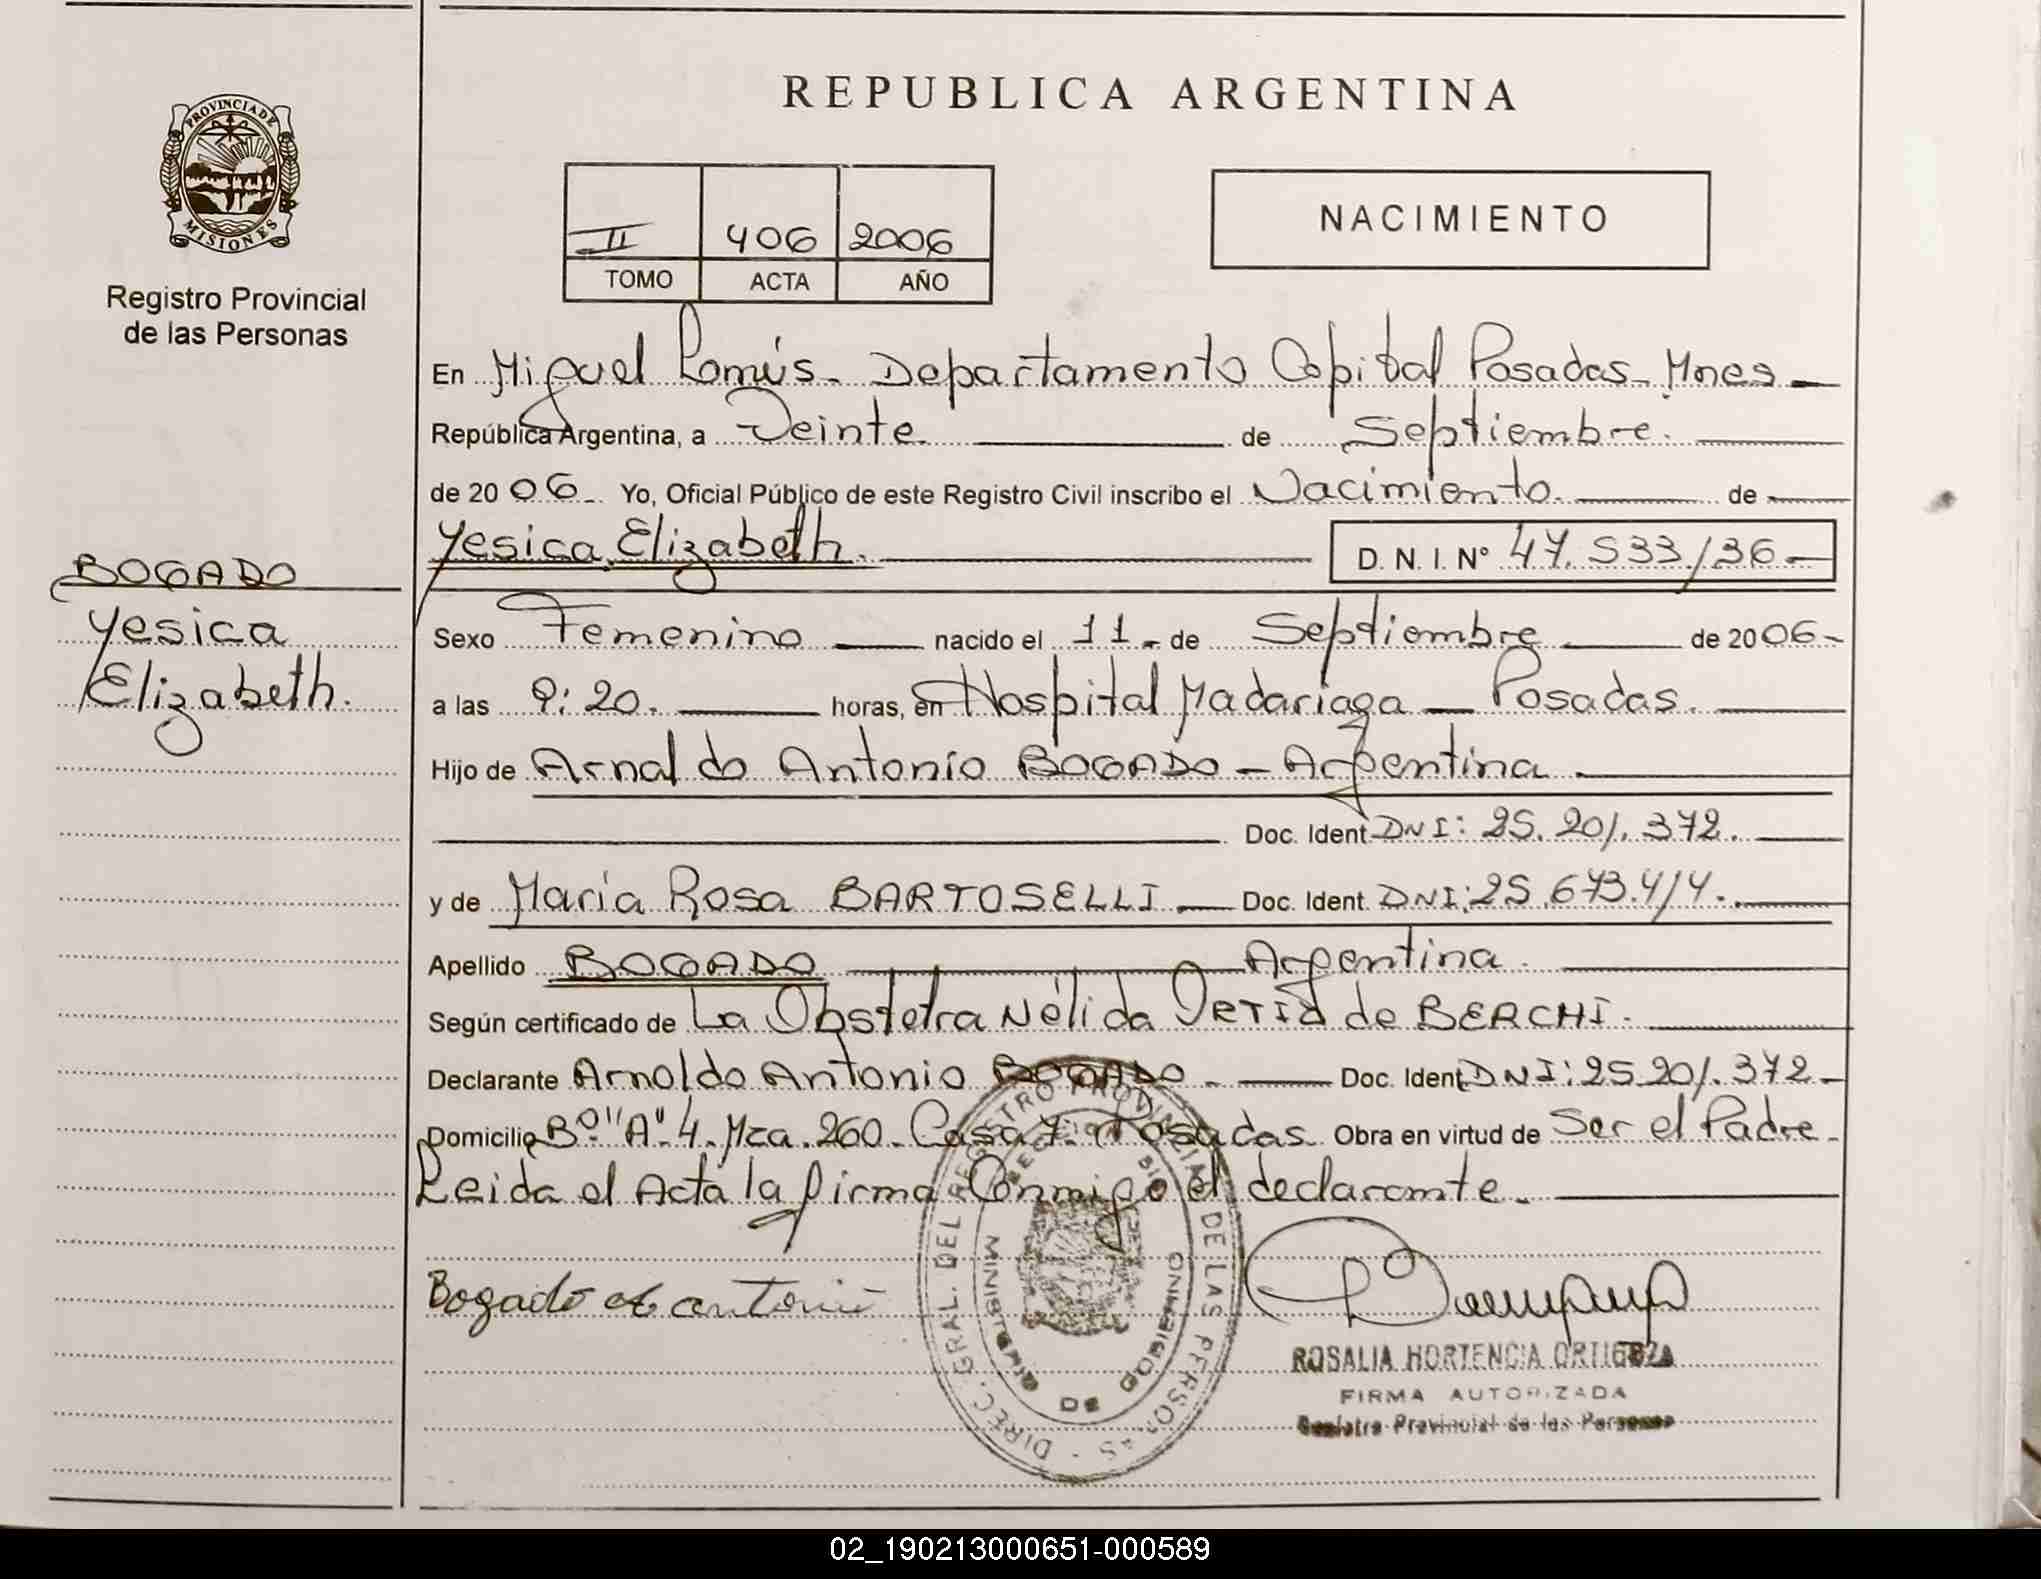 REPUBLICA ARGENTINA
PROVINCIA DE
MISIONES
Registro Provincial
de las Personas
II 406 2006
TOMO ACTA AÑO
NACIMIENTO
En Miguel Lanús - Departamento Capital Posadas - Mnes -
República Argentina, a Veinte. de Septiembre.
de 2006 - Yo, Oficial Público de este Registro Civil inscribo el Nacimiento. de
Yesica Elizabeth. D. N. I. Nº 47.533/36 -
BOGADO
Yesica
Elizabeth.
Sexo Femenino nacido el 11 - de Septiembre de 2006 -
a las 9:20. horas, en Hospital Madariaga - Posadas.
Hijo de Arnaldo Antonio BOGADO - Argentina
Doc. Ident. DNI: 25.201.372.
y de María Rosa BARTOSELLI - Doc. Ident. DNI: 25.673.414.
Apellido BOGADO Argentina.
Según certificado de La Obstetra Nélida de BERCHI.
Declarante Arnoldo Antonio BOGADO - Doc. Ident. DNI: 25.201.372 -
Domicilio Bº "A" 4. Mza. 260 - Casa 7 - Posadas. Obra en virtud de Ser el Padre -
Leida el Acta la firma Conmigo el declarante -
Bogado Antonio
DIREC. GRAL. DEL REGISTRO PROVINCIAL DE LAS PERSONAS -
MINISTERIO DE GOBIERNO
ROSALIA HORTENCIA ORTIGOZA
FIRMA AUTORIZADA
Registro Provincial de las Personas
02_190213000651-000589